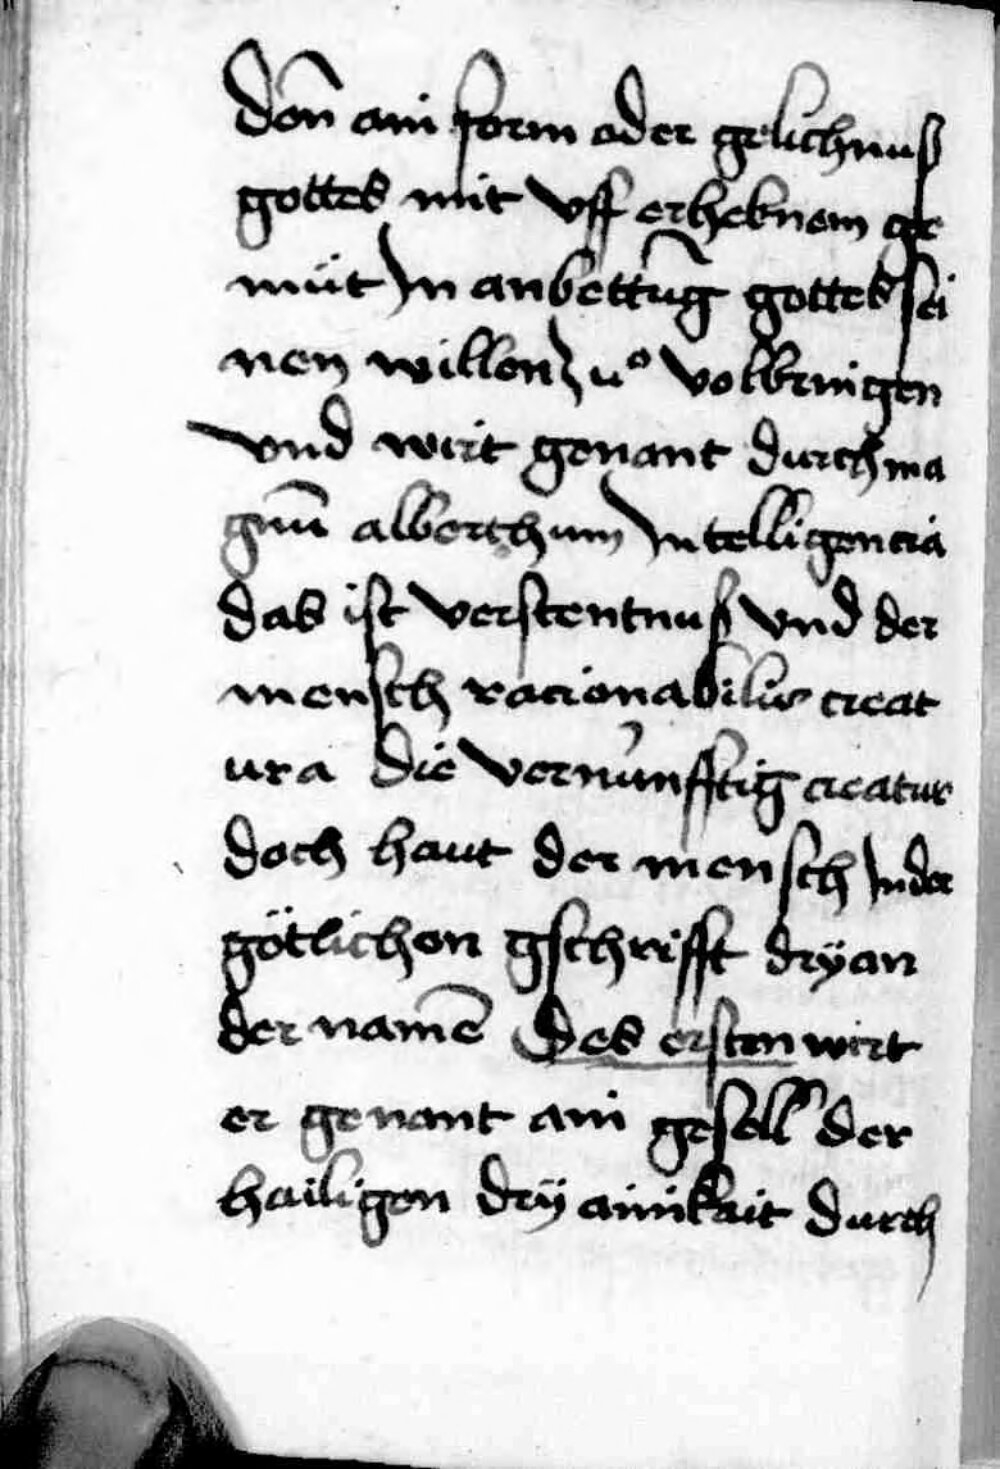 don̄ ain form oder gelichnuß
gottes mit vff erhebnem ge
müt Jn anbettūg gottes sei
nen willen zuͦ volbringen
vnd wirt genant durch ma
gnū alberthum Jntelligencia
das ist verstentnuß vnd der
mensch racionabilis creat
ura die vernünfftig creatur
doch haut der mensch Jn der
götlichen gschrifft dryͤ an
der namē Des ersten wirt
er genant ain gesell der
hailigen drÿ ainikait durch